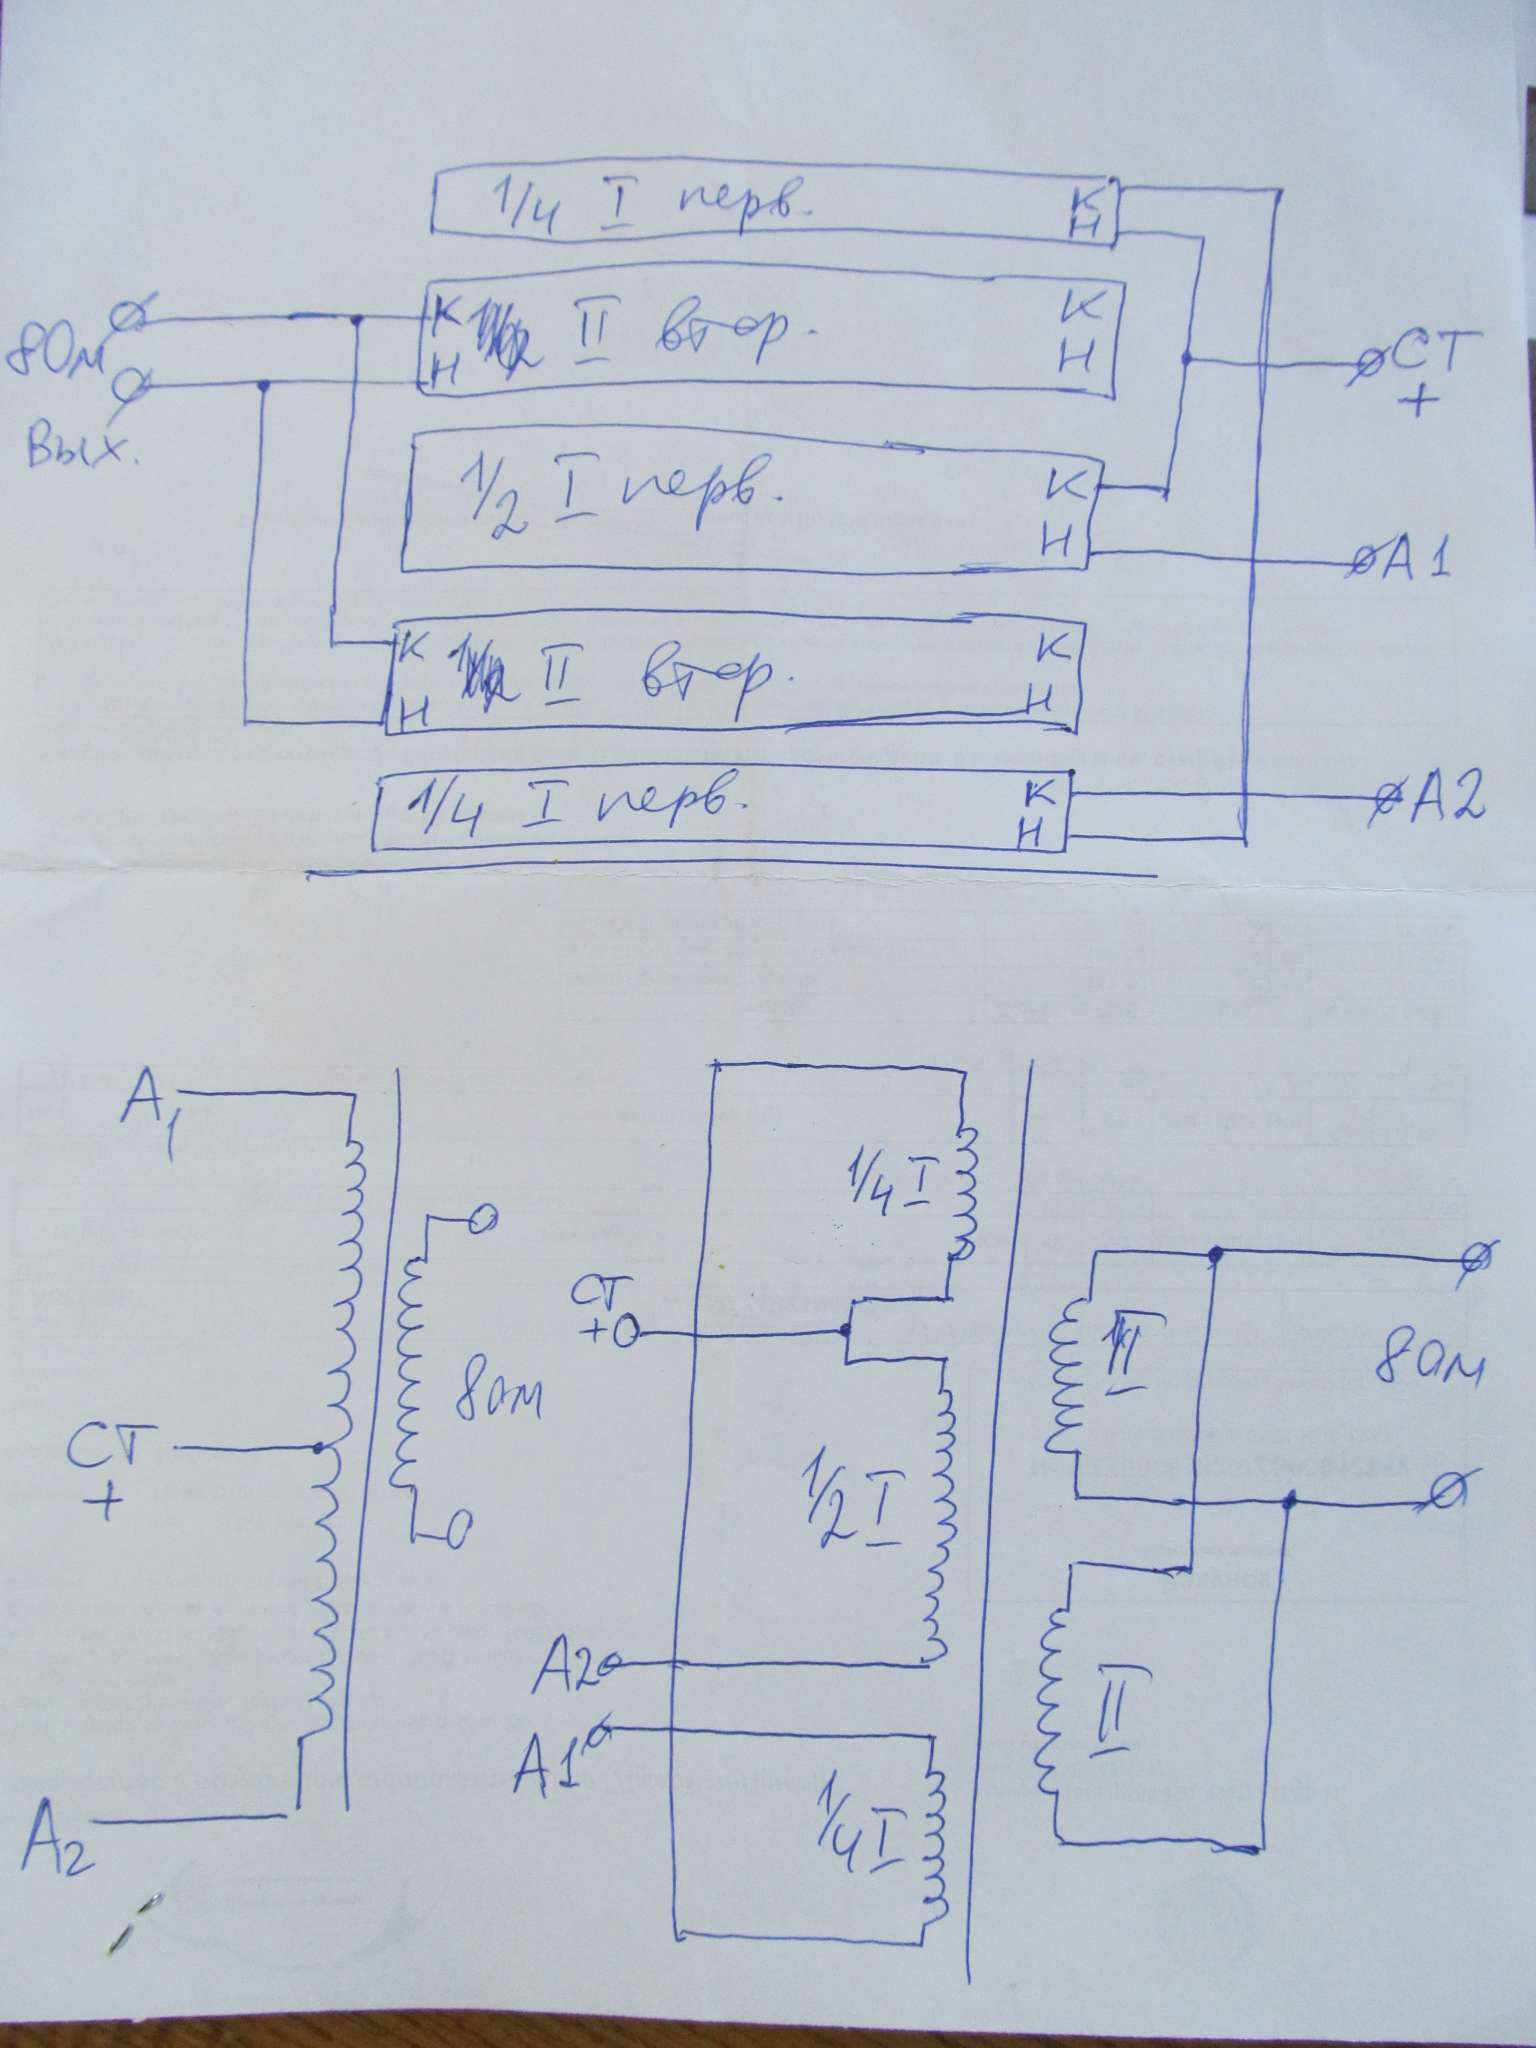 1/4 I перв. К
Н
8Ом
Вых.
К II втор. К
Н Н
СТ
+
1/2 I перв. К
Н
А1
К II втор. К
Н Н
1/4 I перв. К
Н
А2
А1
СТ
+
А2
8ом
1/4 I
СТ
+
1/2 I
А2
А1
1/4 I
II
8ом
II